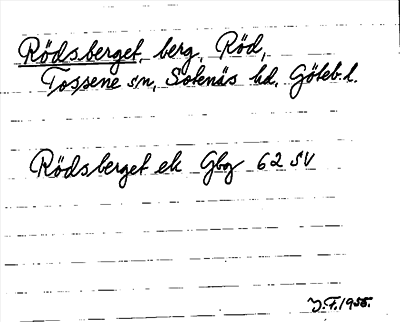 Rödsberget, berg, Röd,
Tossene sn, Sotenäs hd, Göteb. l.
Rödsberget ek Gbg 62 SV
J.F. 1955.